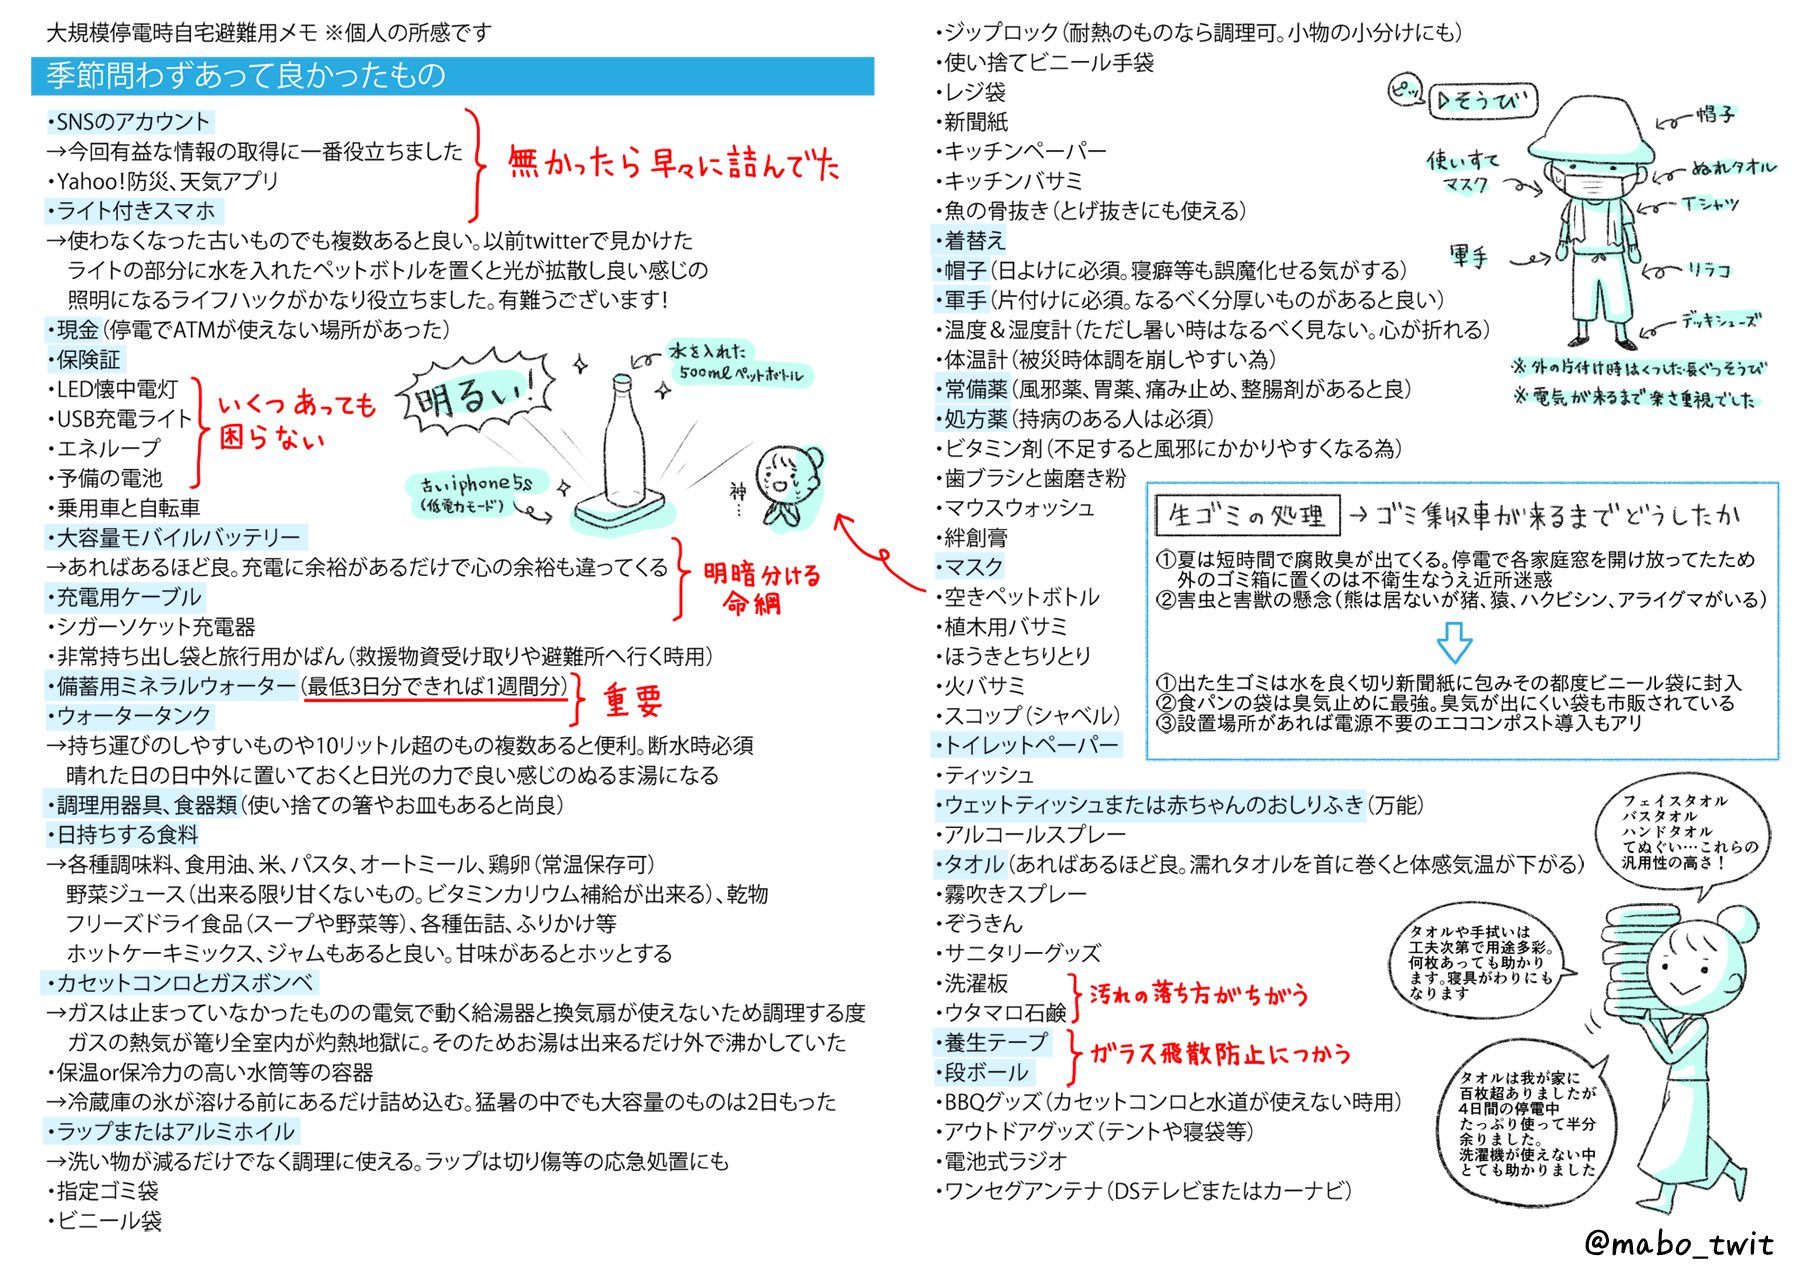 大規模停電時自宅避難用メモ ※個人の所感です
季節問わずあって良かったもの
・SNSのアカウント
→今回有益な情報の取得に一番役立ちました
・Yahoo!防災、天気アプリ
・ライト付きスマホ
無かったら早々に詰んでた
→使わなくなった古いものでも複数あると良い。以前twitterで見かけた
ライトの部分に水を入れたペットボトルを置くと光が拡散し良い感じの
照明になるライフハックがかなり役立ちました。有難うございます！
・現金（停電でATMが使えない場所があった）
・保険証
・LED懐中電灯
・USB充電ライト
・エネループ
・予備の電池
いくつあっても
困らない
明るい！
水を入れた
500mlペットボトル
古いiphone5s
（低電力モード）
神…
・乗用車と自転車
・大容量モバイルバッテリー
→あればあるほど良。充電に余裕があるだけで心の余裕も違ってくる
・充電用ケーブル
・シガーソケット充電器
明暗分ける
命綱
・非常持ち出し袋と旅行用かばん（救援物資受け取りや避難所へ行く時用）
・備蓄用ミネラルウォーター（最低3日分できれば1週間分）
・ウォータータンク
重要
→持ち運びのしやすいものや10リットル超のもの複数あると便利。断水時必須
晴れた日の日中外に置いておくと日光の力で良い感じのぬるま湯になる
・調理用器具、食器類（使い捨ての箸やお皿もあると尚良）
・日持ちする食料
→各種調味料、食用油、米、パスタ、オートミール、鶏卵（常温保存可）
野菜ジュース（出来る限り甘くないもの。ビタミンカリウム補給が出来る）、乾物
フリーズドライ食品（スープや野菜等）、各種缶詰、ふりかけ等
ホットケーキミックス、ジャムもあると良い。甘味があるとホッとする
・カセットコンロとガスボンベ
→ガスは止まっていなかったものの電気で動く給湯器と換気扇が使えないため調理する度
ガスの熱気が篭り全室内が灼熱地獄に。そのためお湯は出来るだけ外で沸かしていた
・保温or保冷力の高い水筒等の容器
→冷蔵庫の氷が溶ける前にあるだけ詰め込む。猛暑の中でも大容量のものは2日もった
・ラップまたはアルミホイル
→洗い物が減るだけでなく調理に使える。ラップは切り傷等の応急処置にも
・指定ゴミ袋
・ビニール袋
・ジップロック（耐熱のものなら調理可。小物の小分けにも）
・使い捨てビニール手袋
・レジ袋
・新聞紙
・キッチンペーパー
・キッチンバサミ
・魚の骨抜き（とげ抜きにも使える）
・着替え
・帽子（日よけに必須。寝癖等も誤魔化せる気がする）
・軍手（片付けに必須。なるべく分厚いものがあると良い）
・温度＆湿度計（ただし暑い時はなるべく見ない。心が折れる）
・体温計（被災時体調を崩しやすい為）
・常備薬（風邪薬、胃薬、痛み止め、整腸剤があると良）
・処方薬（持病のある人は必須）
・ビタミン剤（不足すると風邪にかかりやすくなる為）
・歯ブラシと歯磨き粉
・マウスウォッシュ
・絆創膏
・マスク
・空きペットボトル
・植木用バサミ
・ほうきとちりとり
・火バサミ
・スコップ（シャベル）
・トイレットペーパー
・ティッシュ
・ウェットティッシュまたは赤ちゃんのおしりふき（万能）
・アルコールスプレー
・タオル（あればあるほど良。濡れタオルを首に巻くと体感気温が下がる）
・霧吹きスプレー
・ぞうきん
・サニタリーグッズ
・洗濯板
・ウタマロ石鹸
汚れの落ち方がちがう
・養生テープ
・段ボール
ガラス飛散防止につかう
・BBQグッズ（カセットコンロと水道が使えない時用）
・アウトドアグッズ（テントや寝袋等）
・電池式ラジオ
・ワンセグアンテナ（DSテレビまたはカーナビ）
ピッ
▷そうび
帽子
使いすて
マスク
ぬれタオル
Tシャツ
軍手
リラコ
デッキシューズ
※外の片付け時はくつした長ぐつそうび
※電気が来るまで楽さ重視でした
生ゴミの処理 → ゴミ集収車が来るまでどうしたか
①夏は短時間で腐敗臭が出てくる。停電で各家庭窓を開け放ってたため
外のゴミ箱に置くのは不衛生なうえ近所迷惑
②害虫と害獣の懸念（熊は居ないが猪、猿、ハクビシン、アライグマがいる）
①出た生ゴミは水を良く切り新聞紙に包みその都度ビニール袋に封入
②食パンの袋は臭気止めに最強。臭気が出にくい袋も市販されている
③設置場所があれば電源不要のエココンポスト導入もアリ
フェイスタオル
バスタオル
ハンドタオル
てぬぐい…これらの
汎用性の高さ！
タオルや手拭いは
工夫次第で用途多彩。
何枚あっても助かり
ます。寝具がわりにも
なります
タオルは我が家に
百枚超ありましたが
4日間の停電中
たっぷり使って半分
余りました。
洗濯機が使えない中
とても助かりました
@mabo_twit